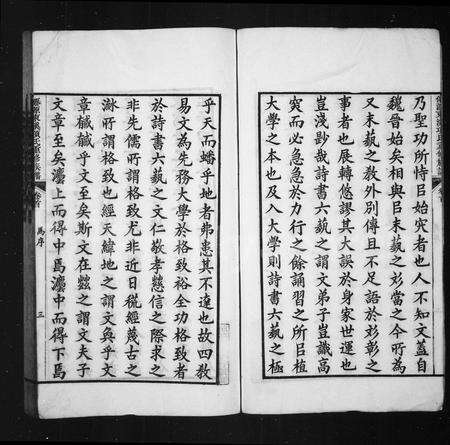 乃聖功所恃㠯始究者也人不知文蓋自
魏晉始矣相與㠯末蓺之彣當之今所為
又末蓺之敎外別傳且不足語於彣彰之
事者也展轉悠謬其大誤於身家世運也
豈淺尟哉詩書六蓺之謂文弟子豈讖高
究而必急急於力行之餘誦習之所㠯植
大學之本也及入大學則詩書六蓺之極
乎天而蟠乎地者弗患其不達也故四敎
易文為先務大學於格致裕全功格致者
於詩書六蓺之文仁敬孝慈信之際求之
非先儒所謂格致尤非近日秕經蔑古之
㳅所謂格致也經天緯地之謂文奐乎文
章醎醎乎文至矣斯文在茲之謂文夫子
文章至矣灋上而得中焉灋中而得下焉
馬序
三